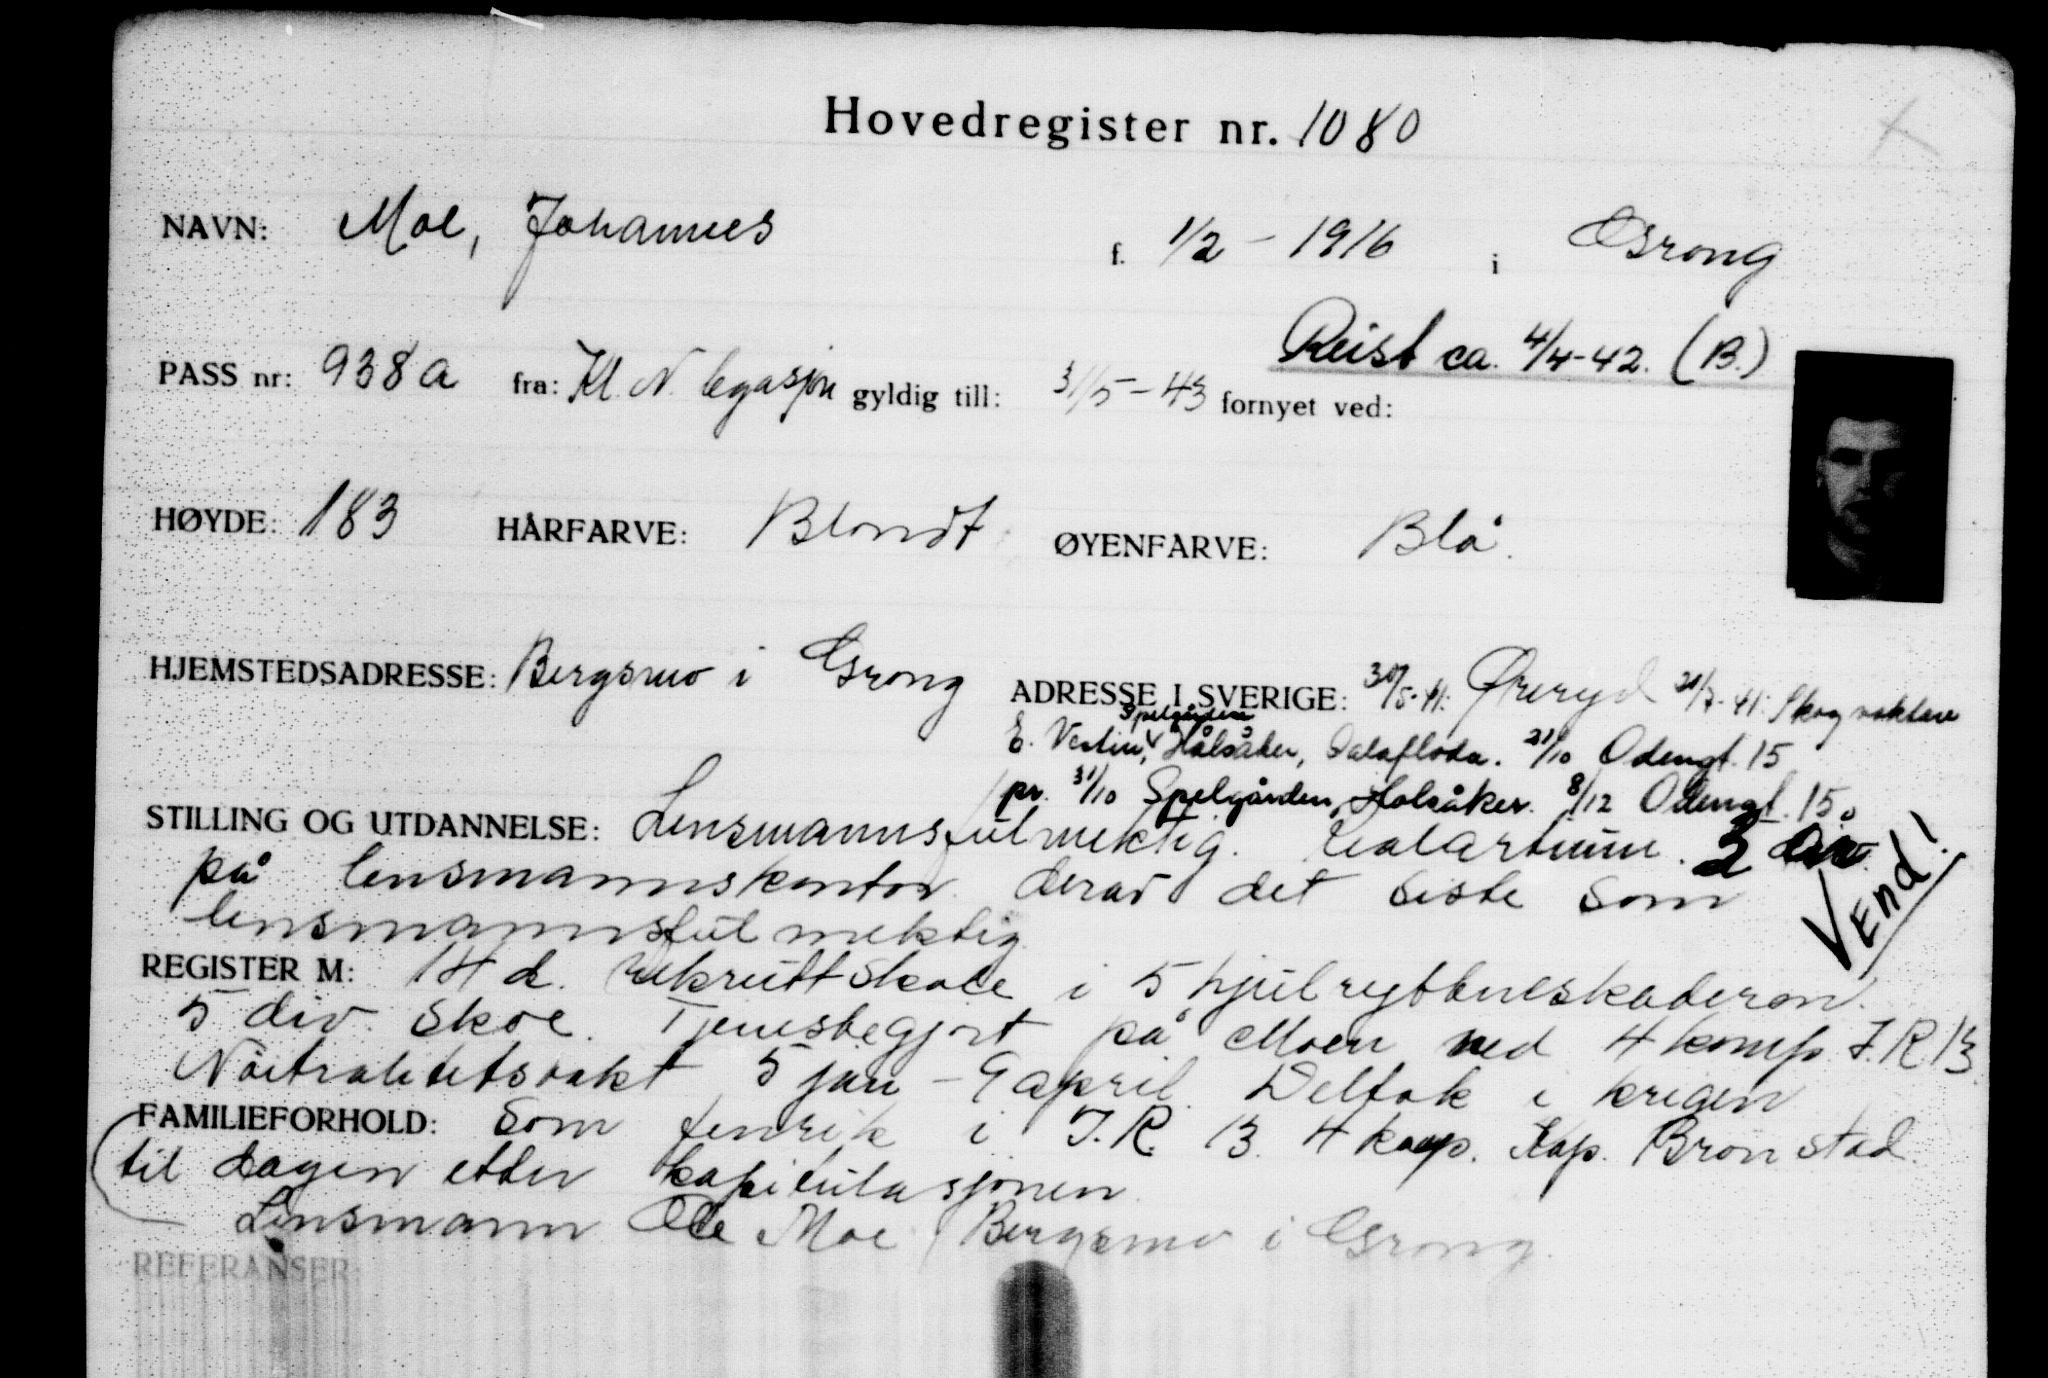 Hovedregister nr. 1080
NAVN: Moe, Johannes f. 1/2 - 1916 i Grong
Reist ca. 4/4-42. (B.)
PASS nr: 938a fra: Kl. N. legasjon gyldig till: 31/5-43 fornyet ved:
HØYDE: 183 HÅRFARVE: Blondt ØYENFARVE: Blå.
HJEMSTEDSADRESSE: Bergsmo i Grong ADRESSE I SVERIGE: 30/5-41: Øreryd 21/7-41: Skogvaktare
Spelgården
E. Vestin, Hålsåker, Dalafloda. 21/10 Odengt. 15
pr. 31/10 Spelgården, Holsåker. 8/12 Odengt. 15.
STILLING OG UTDANNELSE: Lensmannsfulmektig. Realartium. 2 år
på lensmannskontor derav det siste som
lensmannsfulmektig
Vend!
REGISTER M: 14 d. rekruttskole i 5 hjulrytterneskaderon.
5 div. Skoe. Tjenestegjort på Moen ved 4 komp. I.R 13
Nøitralitetsvakt 5 jan - 9 april. Deltok i krigen
FAMILIEFORHOLD: som fenrik i I.R. 13. 4 komp. Kap. Brønstad.
til dagen etter kapitulasjonen
Lensmann Ole Moe, Bergsmo i Grong.
REFERANSER: